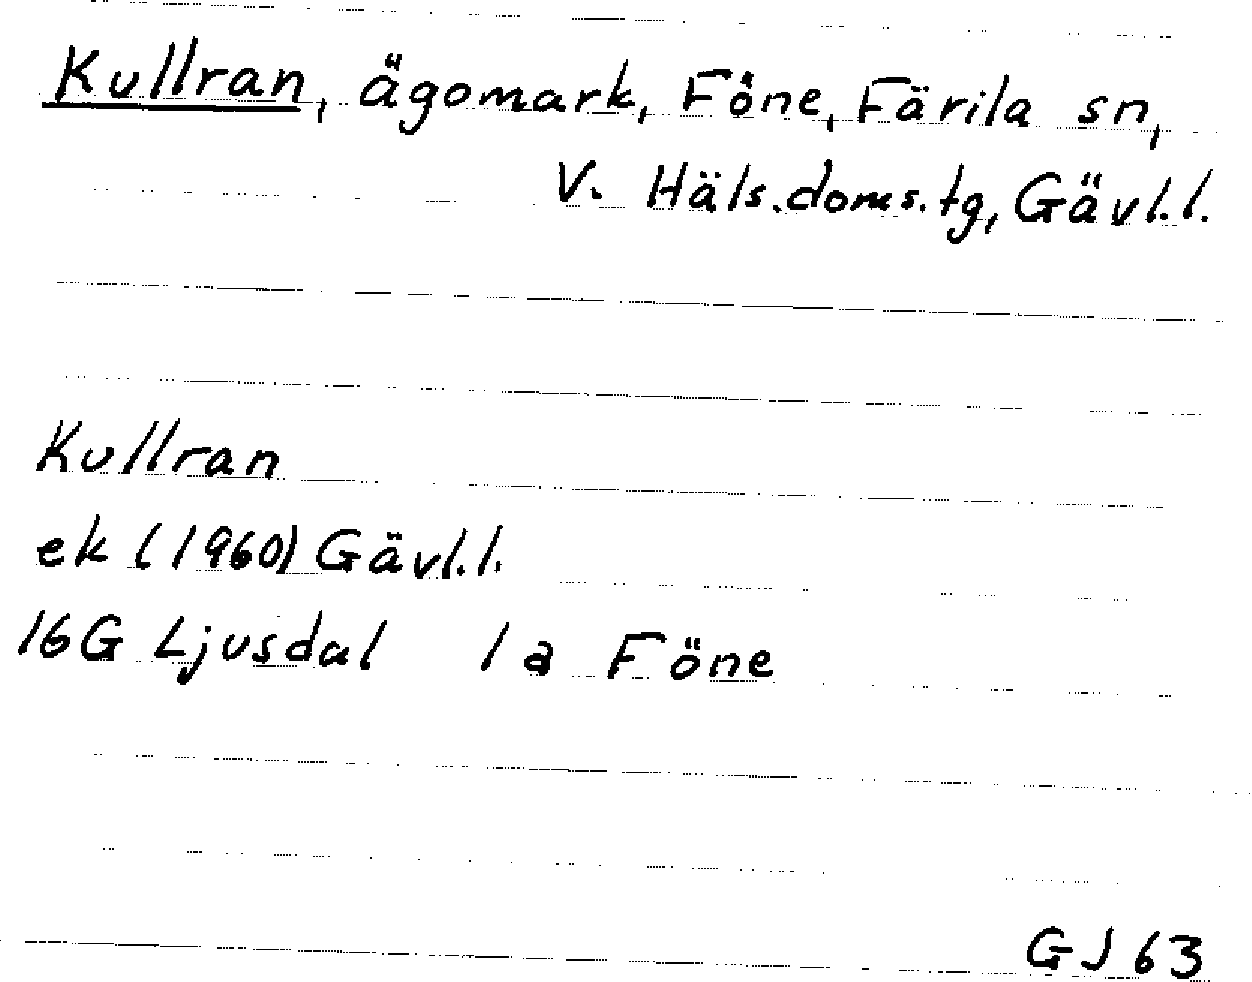 Kullran, ägomark, Föne, Färila sn,
V. Häls.doms.tg, Gävl.l.
Kullran
ek (1960) Gävl.l.
16G Ljusdal 1a Föne
GJ 63